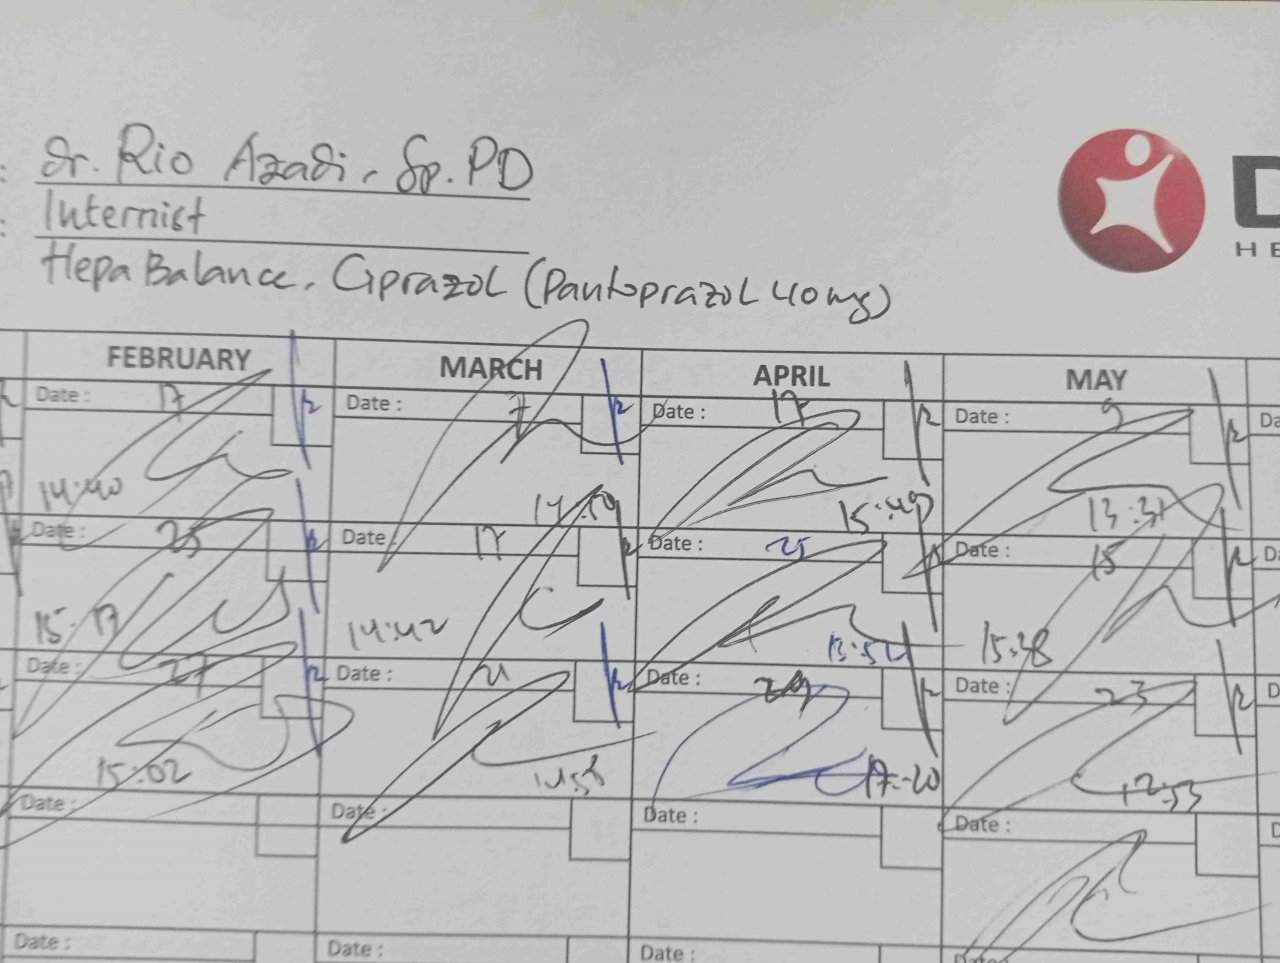 : Dr. Rio Azadi, Sp.PD
: Internist
Hepa Balance, Ciprazol (Pantoprazol 40mg)
D
HE
FEBRUARY MARCH APRIL MAY
Date : 17 Date : 7 Date : 17 Date : 9 Da
14:40 15:49 13:31
Date : 25 Date : 17 Date : 25 Date : 15 Da
15:17 14:42 13:52 15:38
Date : 27 Date : 21 Date : 29 Date : 23 D
15:02 17:20 12:53
Date : Date : Date : Date : D
Date : Date : Date : Date :